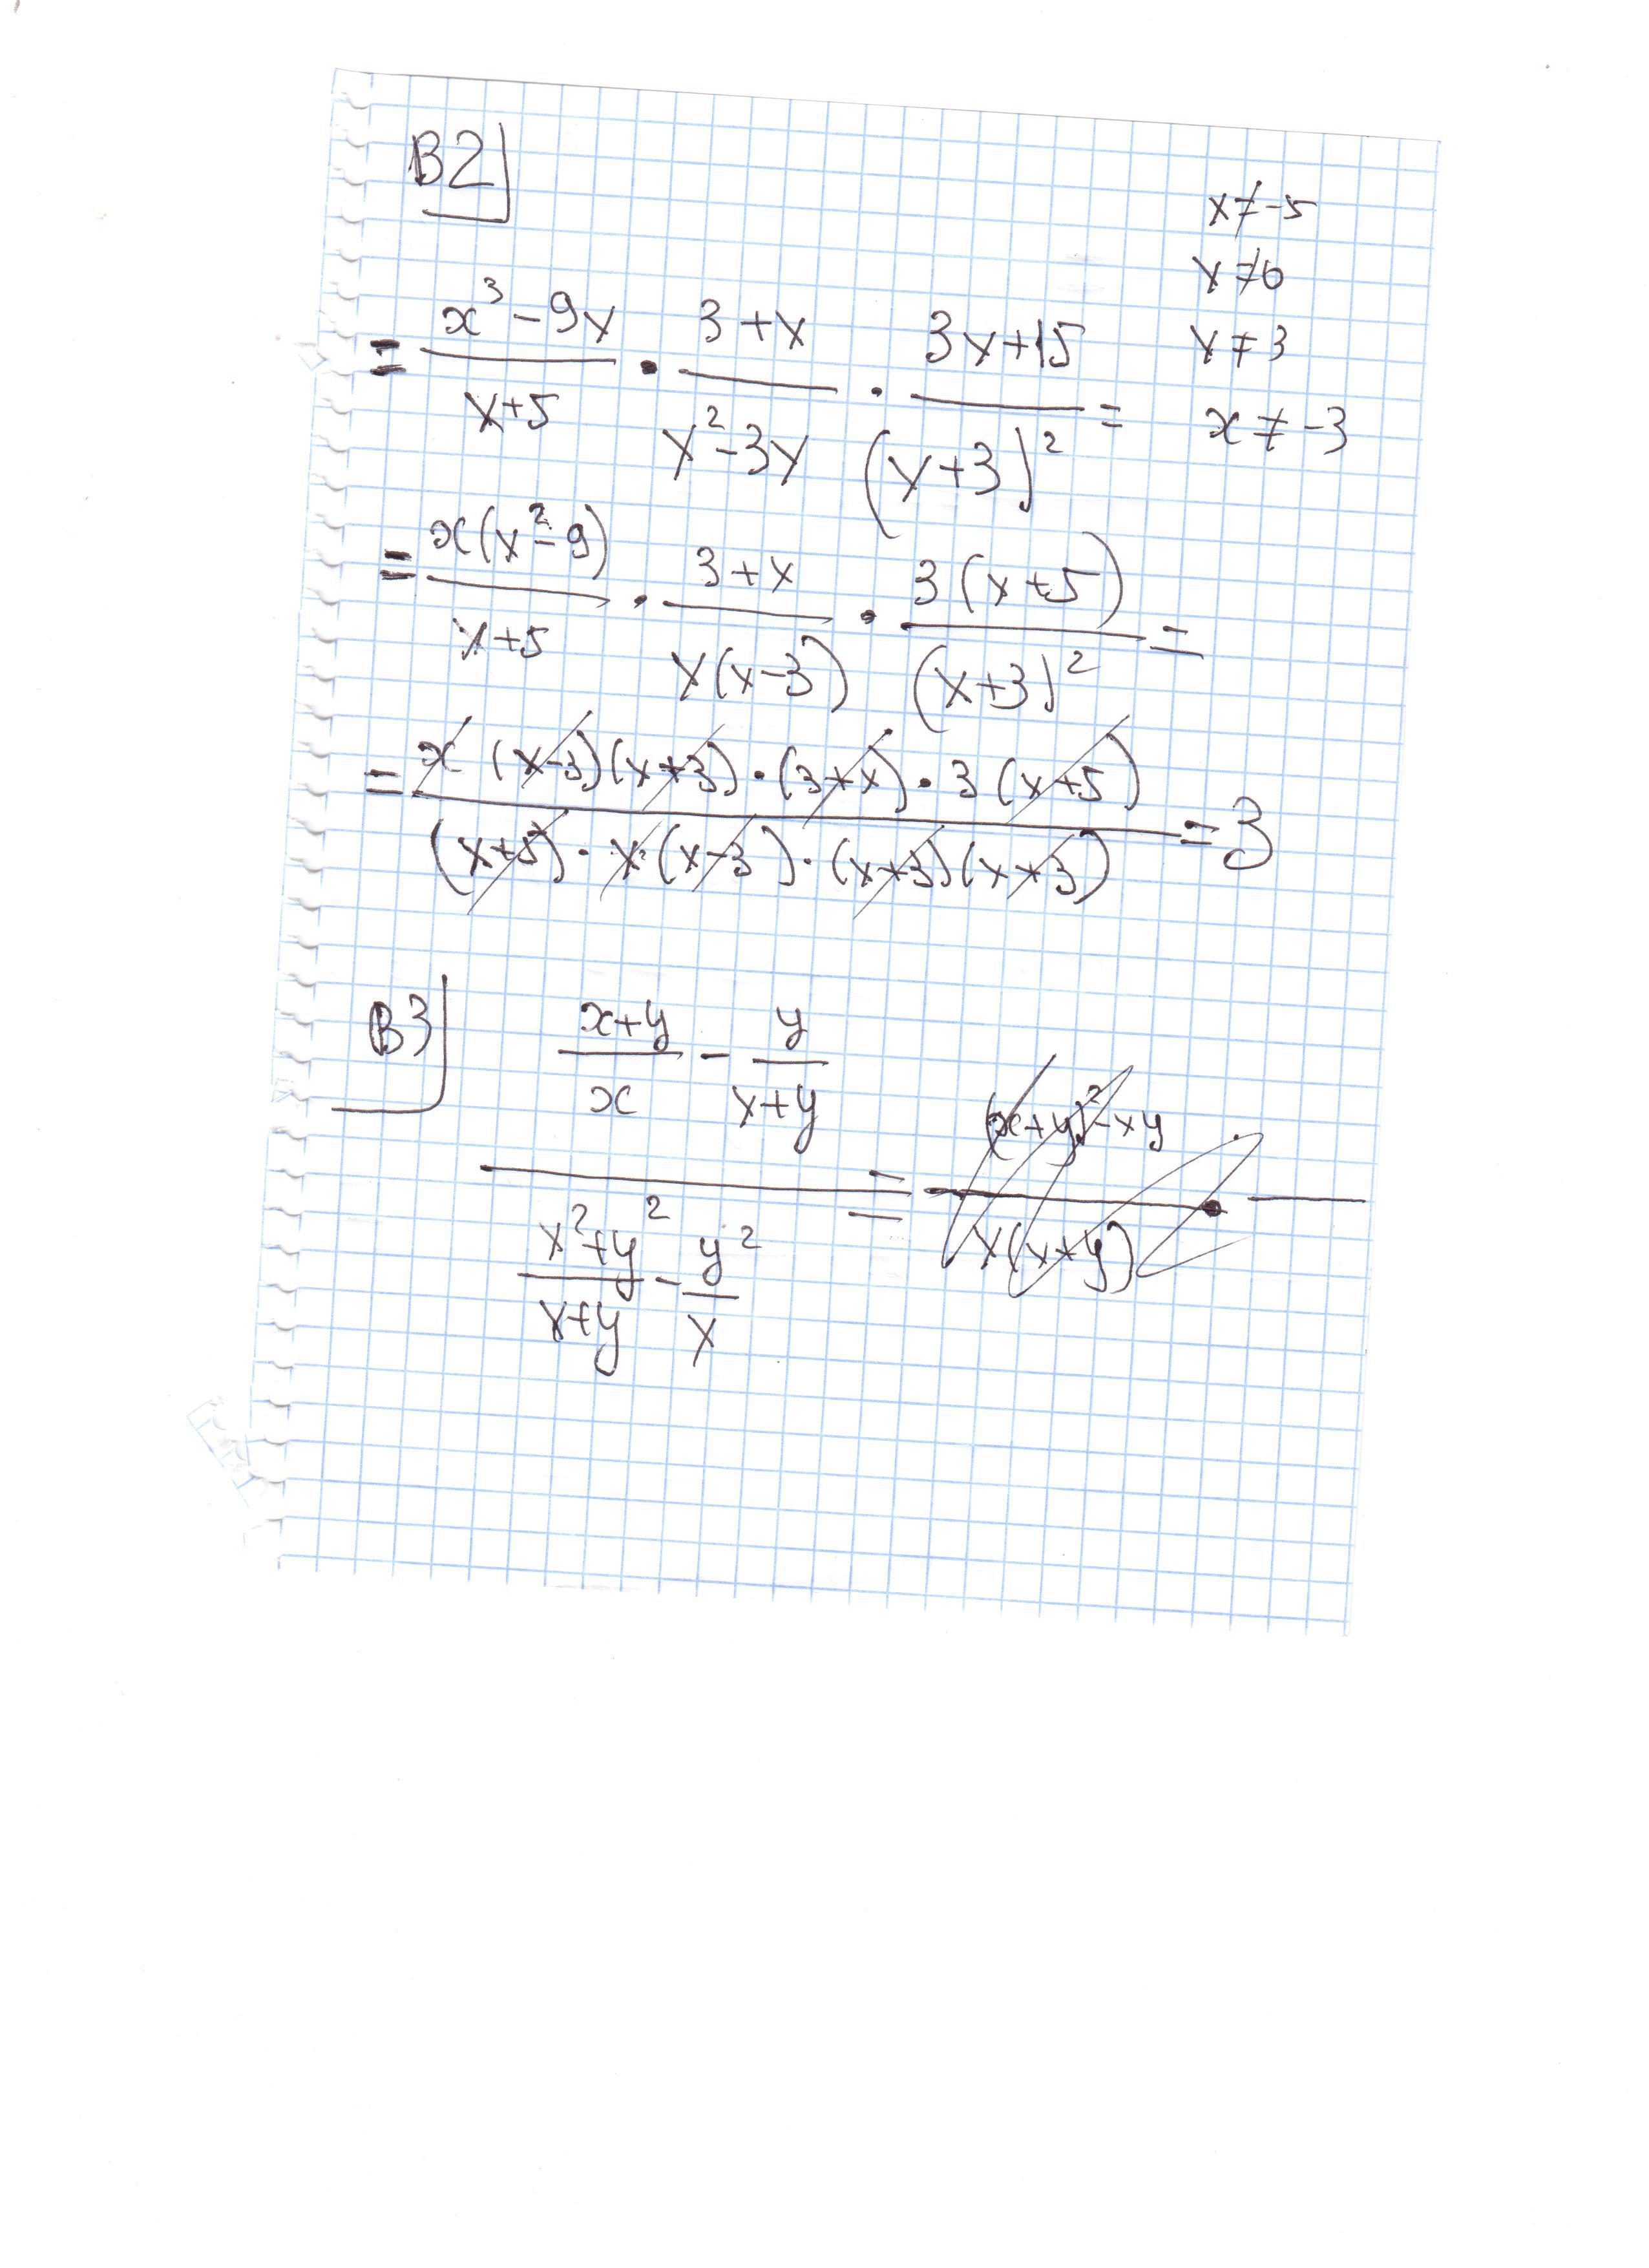 B2
x ≠ -5
x ≠ 0
x ≠ 3
x ≠ -3
= (x³ - 9x)/(x+5) · (3+x)/(x² - 3x) · (3x+15)/(x+3)² =
= x(x² - 9)/(x+5) · (3+x)/(x(x-3)) · 3(x+5)/(x+3)² =
= (x(x-3)(x+3)·(3+x)·3(x+5))/((x+5)·x·(x-3)·(x+3)(x+3)) = 3
B3
((x+y)/x - y/(x+y))/((x²+y²)/(x+y) - y²/x) = ((x+y)² - xy)/(x(x+y)) ·